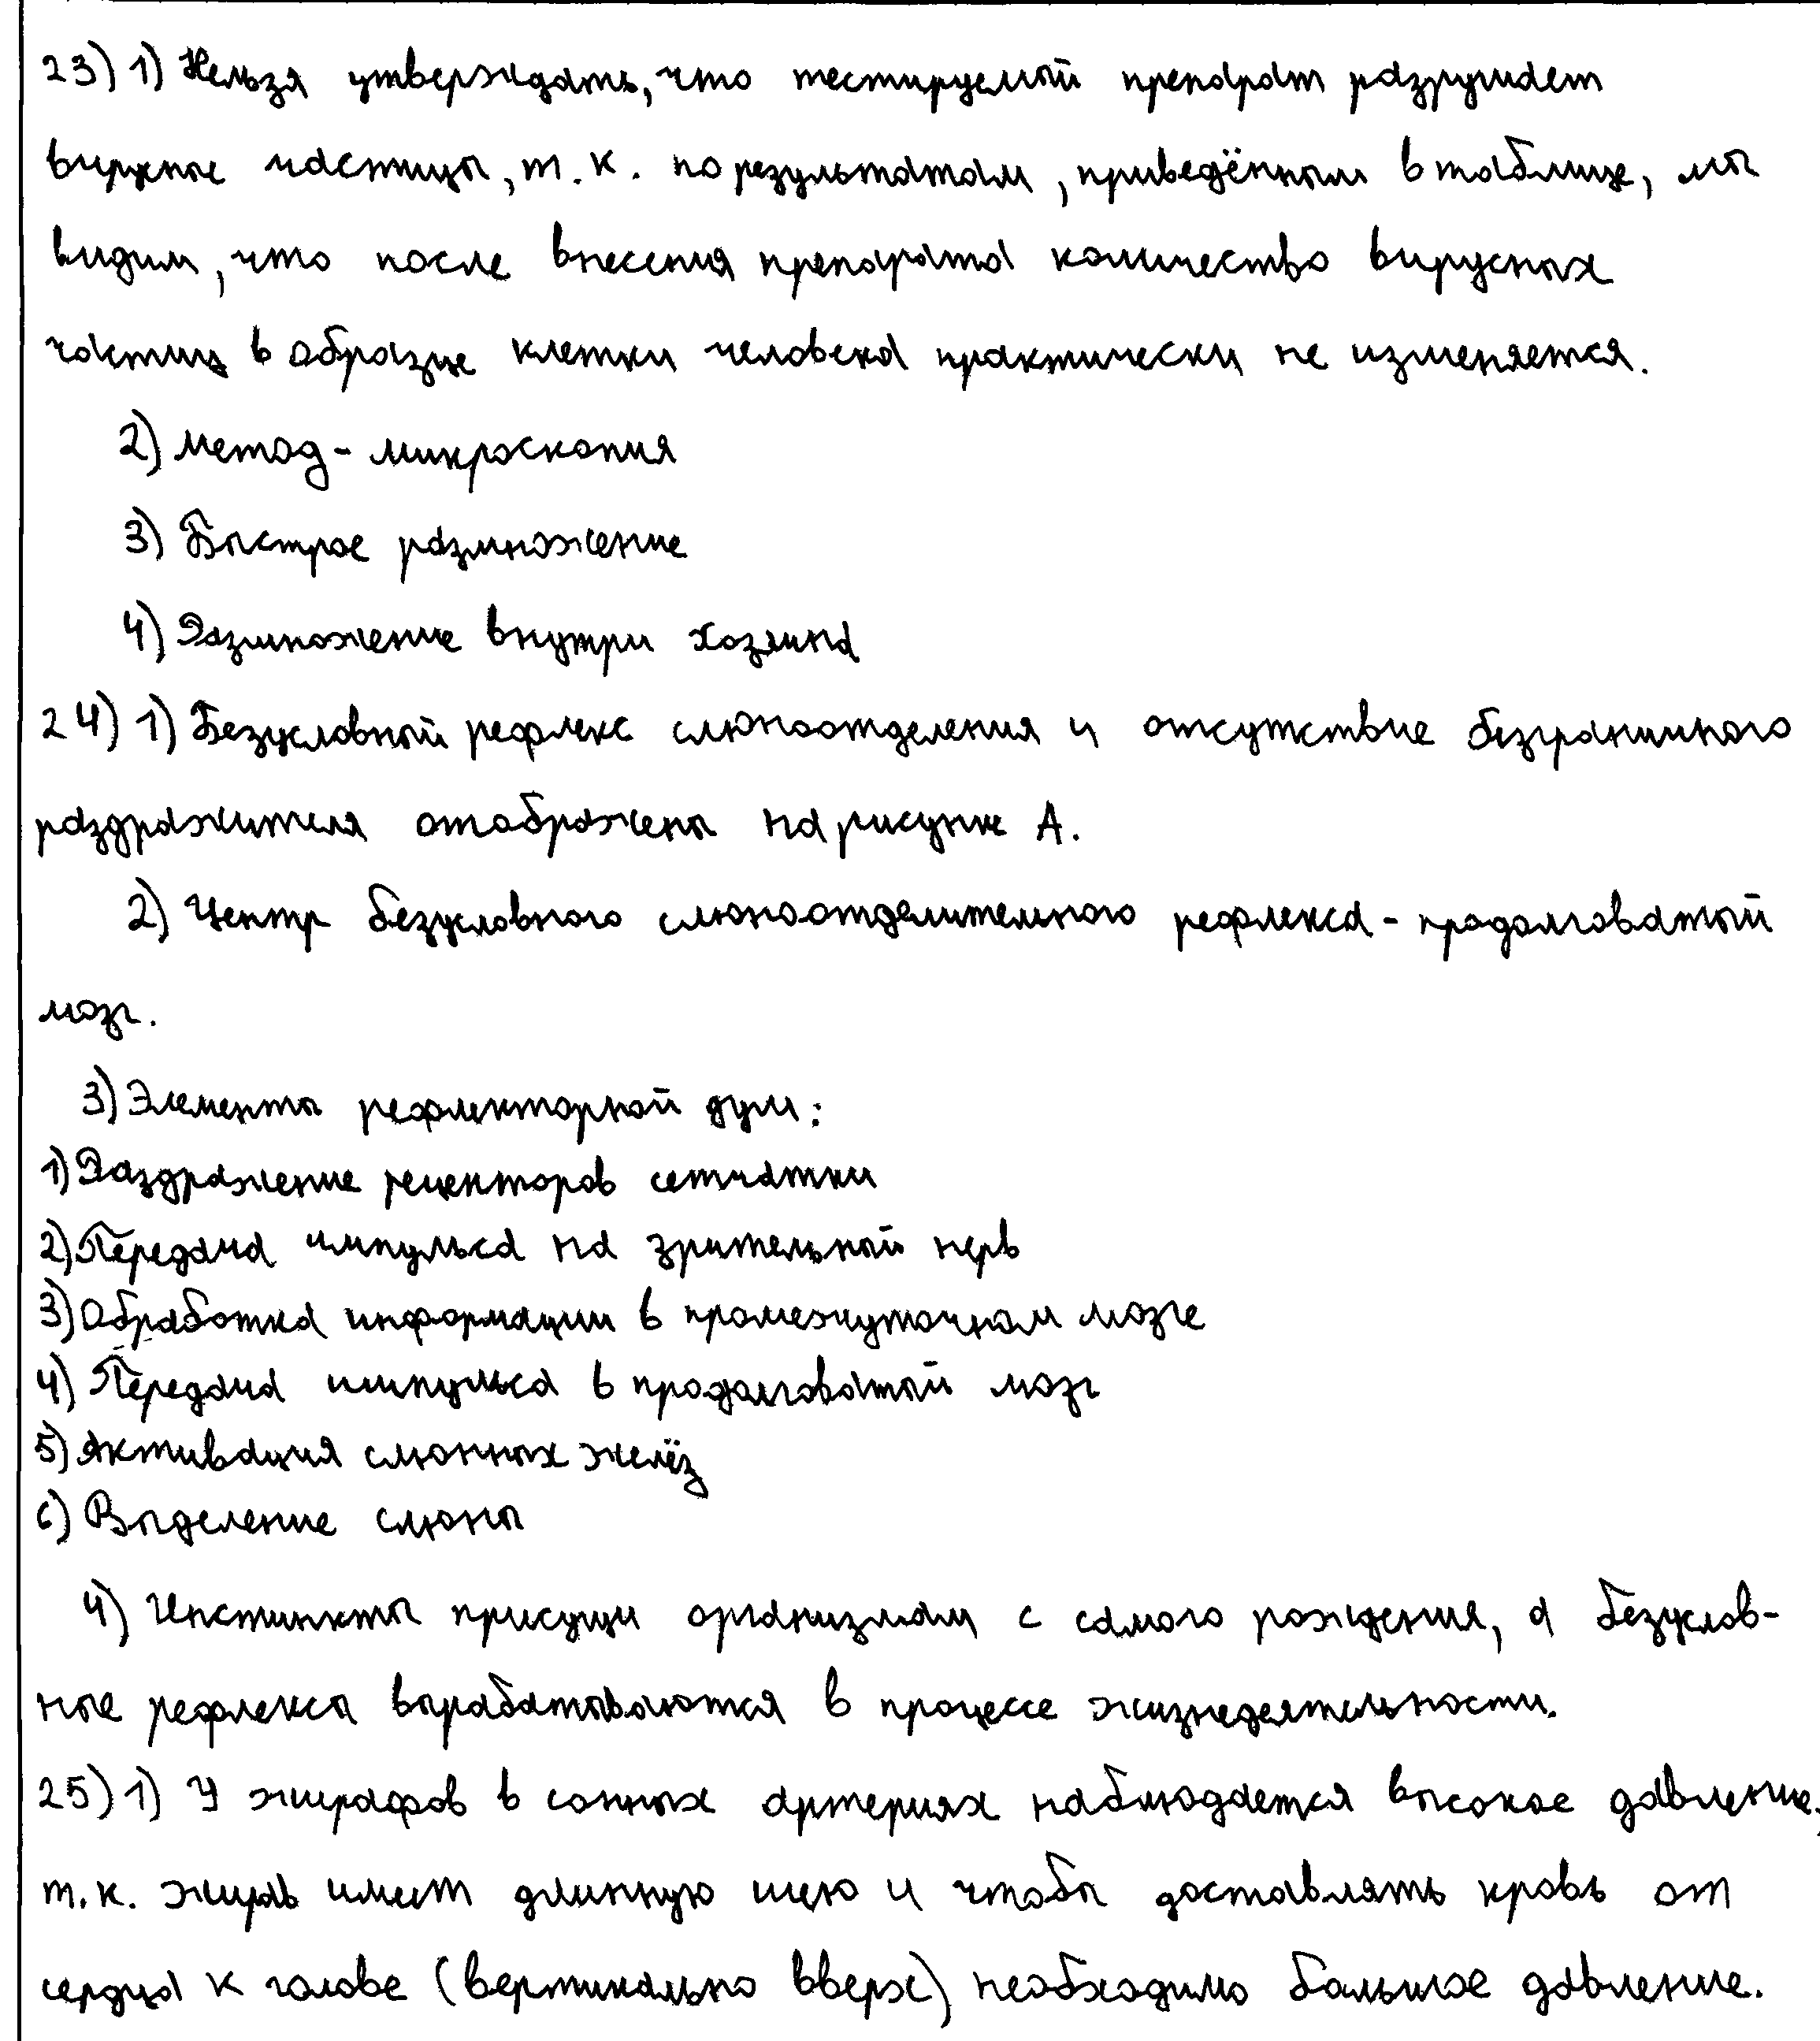 23) 1) Нельзя утверждать, что тестируемый препарат разрушает
вирусные частицы, т.к. по результатам, приведённым в таблице, мы
видим, что после внесения препарата количество вирусных
частиц в образце клетки человека практически не изменяется.
2) Метод - микроскопия
3) Быстрое размножение
4) Размножение внутри хозяина
24) 1) Безусловный рефлекс слюноотделения и отсутствие безграничного
раздражителя отображены на рисунке А.
2) Центр безусловного слюноотделительного рефлекса - продолговатый
мозг.
3) Элементы рефлекторной дуги:
1) Раздражение рецепторов сетчатки
2) Передача импульса на зрительный нерв
3) Обработка информации в промежуточном мозге
4) Передача импульса в продолговатый мозг
5) Активация слюнных желёз
6) Выделение слюны
4) Инстинкты присущи организмам с самого рождения, а безуслов-
ные рефлексы вырабатываются в процессе жизнедеятельности.
25) 1) У жирафов в сонных артериях наблюдается высокое давление,
т.к. жираф имеет длинную шею и чтобы доставлять кровь от
сердца к голове (вертикально вверх) необходимо большое давление.